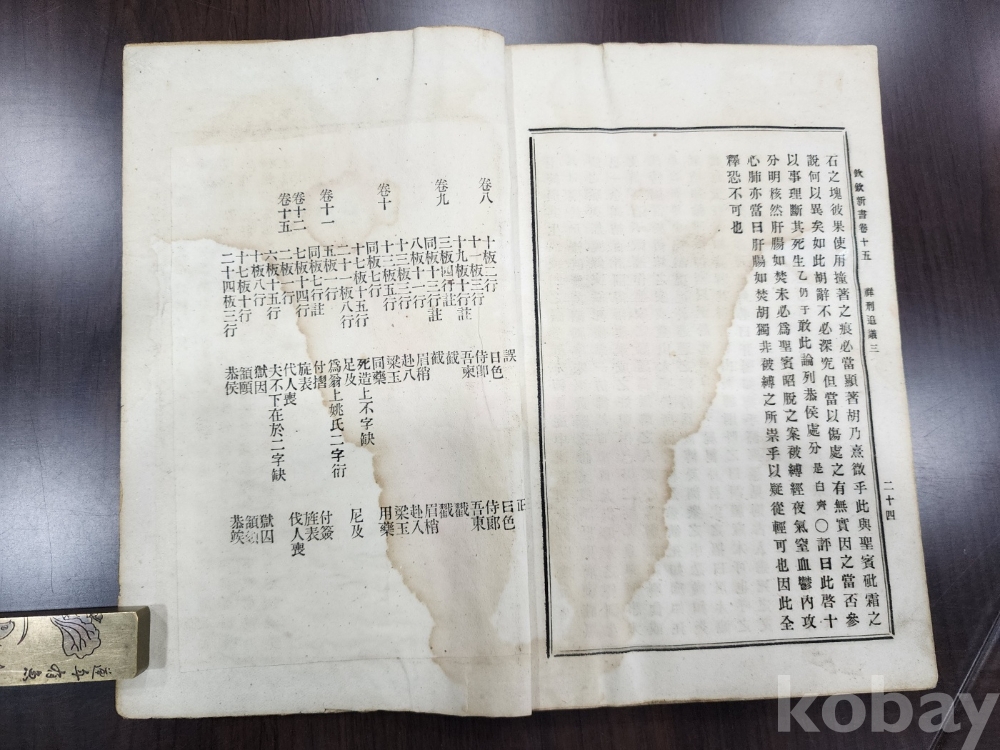 欽欽新書卷十五 祥刑追議三 二十四
石之塊彼果使用撞著之痕必當顯著胡乃熹微乎此與聖賓砒霜之
說何以異矣如此胡辭不必深究但當以傷處之有無實因之當否參
以事理斷其死生乙仍于敢此論列恭侯處分是白齊〇評曰此啓十
分明核然肝腸如焚未必爲聖賓昭脫之案被縛經夜氣窒血鬱內攻
心肺亦當曰肝腸如焚胡獨非被縛之所祟乎以疑從輕可也因此全
釋恐不可也
誤 正
卷八 十板二行 日色 曰色
十一板三行 侍郞 侍郎
十九板十行 吾柬 吾東
卷九 三板四行註 截 戳
同板十三行註 截 戳
八板十一行 眉稍 眉梢
十三板三行 赴八 赴入
十三板五行 梁玉 梁玉
卷十 同板七行 同藥 用藥
十七板十五行 死造上不字缺
二十一板八行 足及 尼及
卷十一 五板一行 爲翁上姚氏二字衍
同板七行註 付摺 付簽
卷十二 七板十四行 旌表 旌表
卷十五 二板一行 代人喪 伐人喪
六板十五行 夫不下在於二字缺
十板八行 獄因 獄囚
十七板十行 頷頤 頷
二十四板三行 恭侯 恭竢
kobay